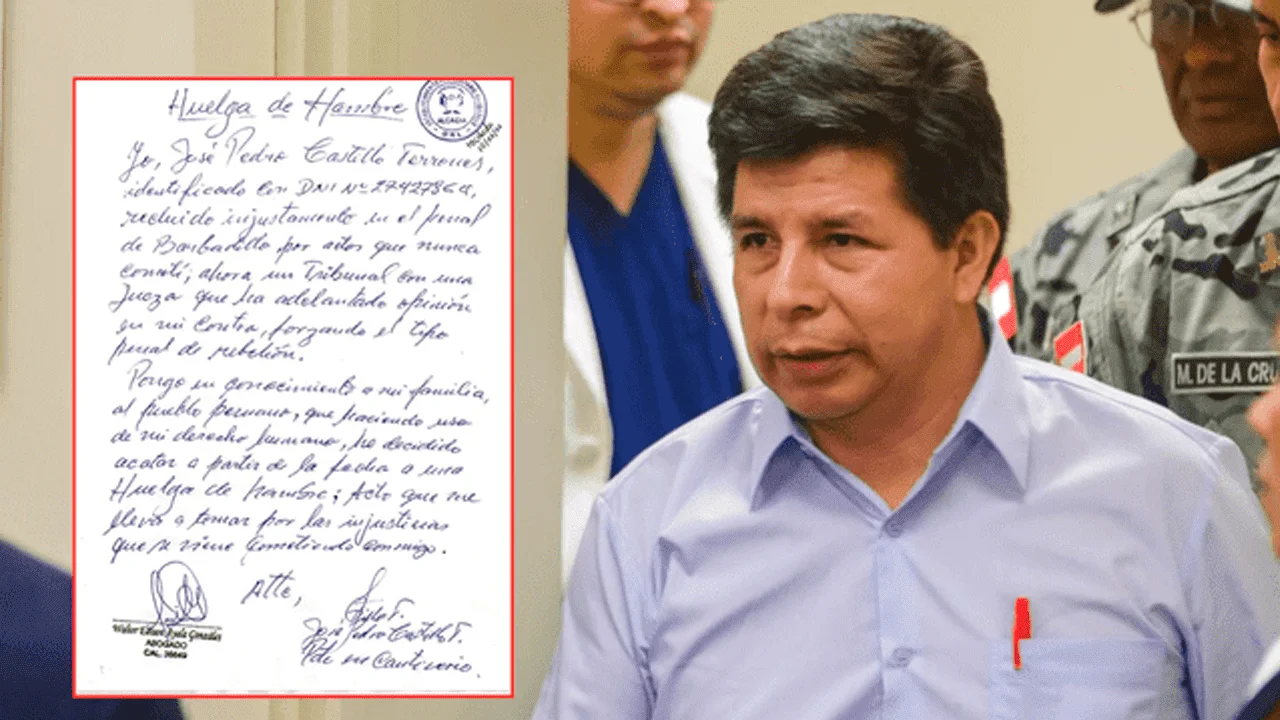 Huelga de Hambre
ALCAIDIA
Yo, José Pedro Castillo Terrones,
identificado con DNI Nº 27427864,
recluido injustamente en el penal
de Barbadillo por actos que nunca
cometí; ahora un Tribunal con una
Jueza que ha adelantado opinión
en mi contra, forzando el tipo
penal de rebelión.
Pongo en conocimiento a mi familia,
al pueblo peruano, que haciendo uso
de mi derecho humano, he decidido
acatar a partir de la fecha a una
Huelga de hambre; Acto que me
lleva a tomar por las injusticias
que se viene cometiendo conmigo.
Atte,
José Pedro Castillo T.
Pdte en Cautiverio.
Walter Edison Ayala Gonzales
ABOGADO
M. DE LA CRU